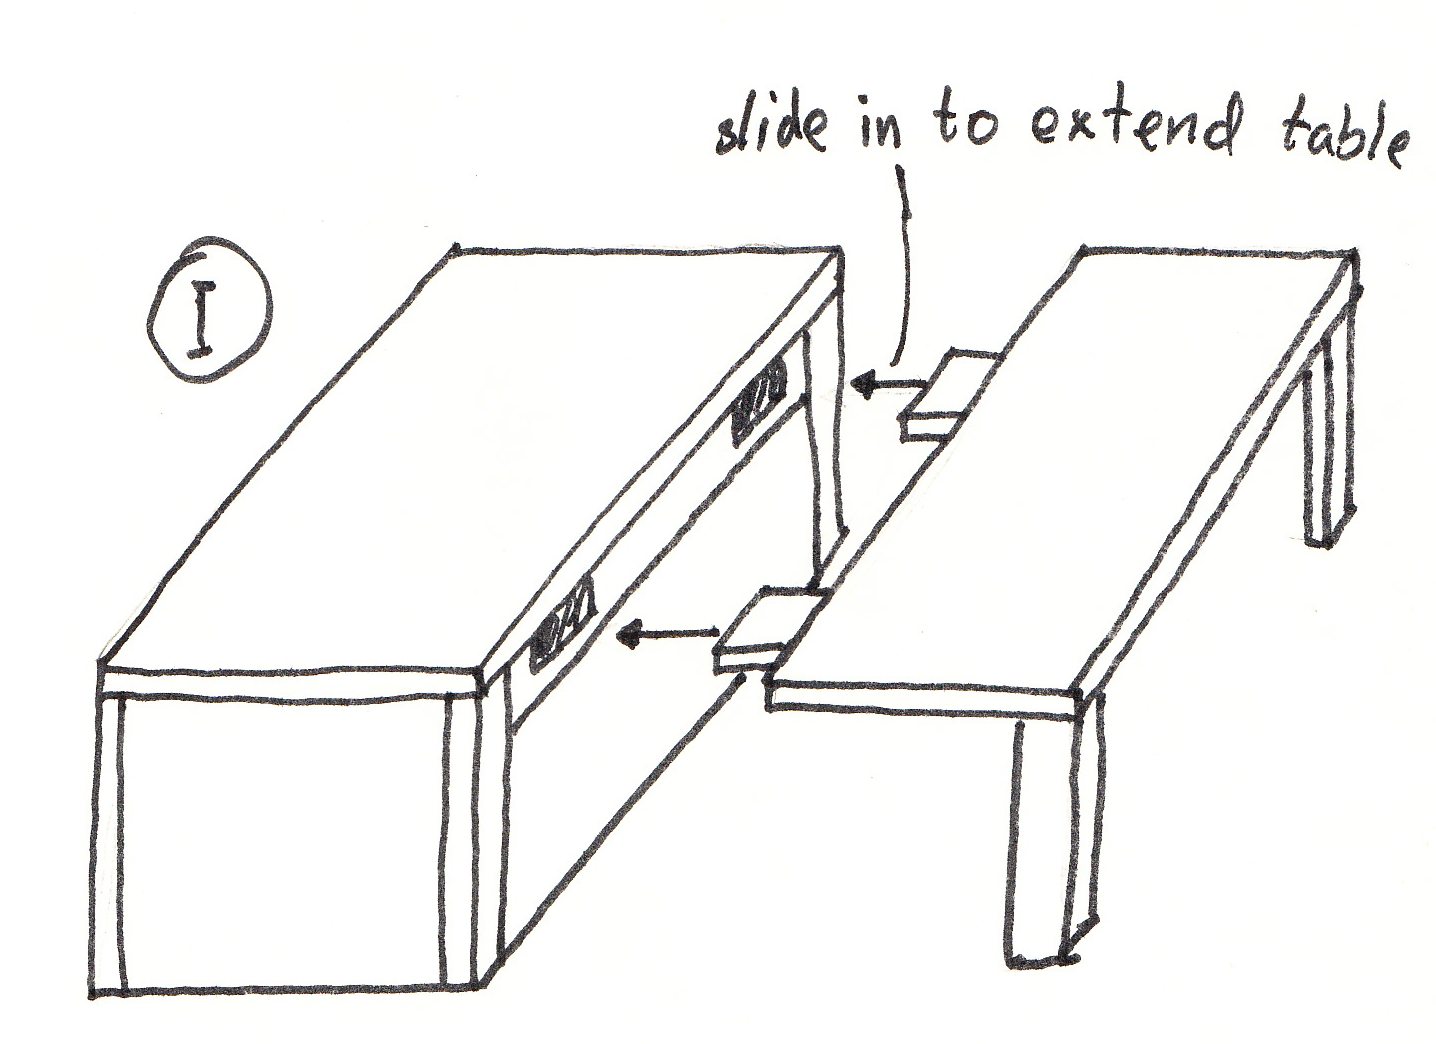 slide in to extend table
I